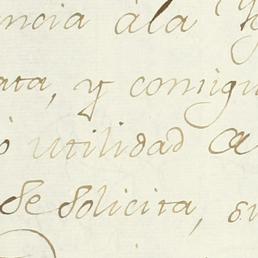 ncia ála
ata, y consigu
utilidad
Se Solicita, su